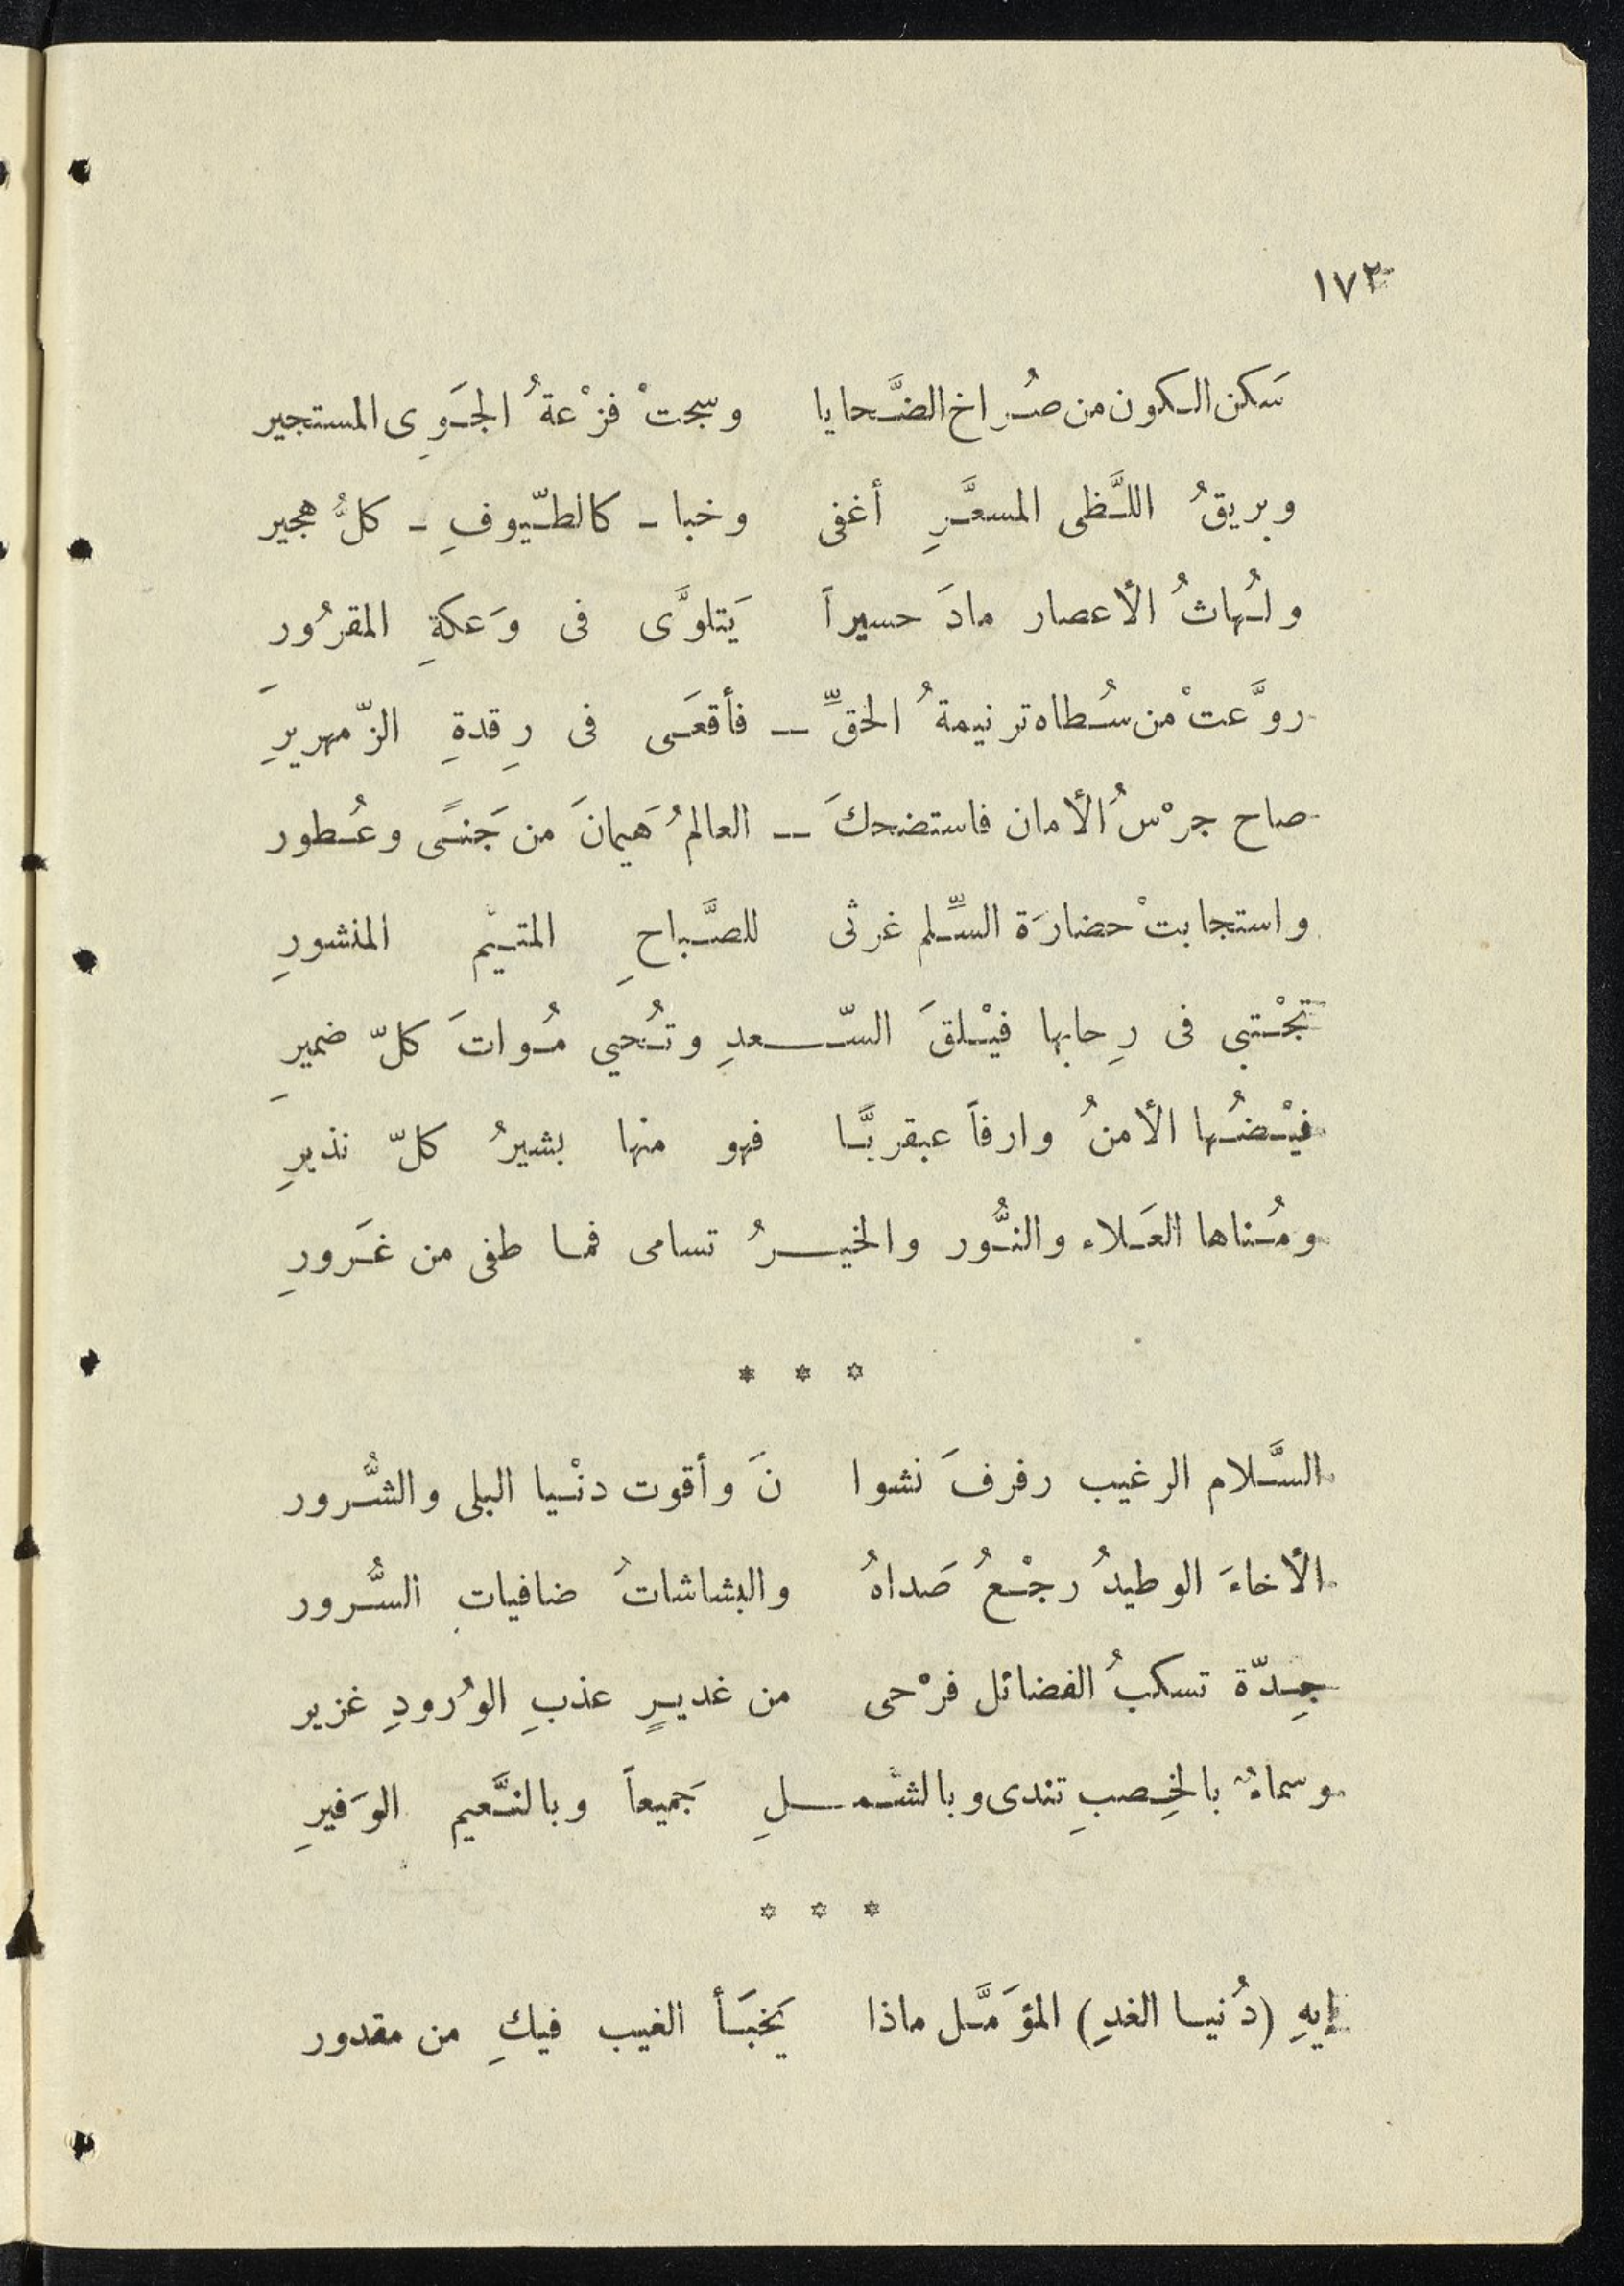 ١٧٢
سَكن الكون من صُراخ الضَّحايا وسجتْ فزْعةُ الجَوِى المستجير
وبريقُ اللَّظى المسعَّرِ أغفى وخبا - كالطّيوفِ - كلُّ هجير
ولُهاثُ الأعصار مادَ حسيراً يَتلوَّى فى وَعكةِ المقرُور
روَّعتْ من سُطاه ترنيمةُ الحقِّ — فأقعَى فى رِقدةِ الزّمهريرِ
صاح جرْسُ الأمان فاستضحكَ — العالمُ هَيمانَ من جَنىً وعُطور
واستجابتْ حضارَة السِّلم غرثى للصَّباحِ المتيّم المنشورِ
تجْتبى فى رِحابها فيْلقَ السّعدِ وتُحيي مُواتَ كلّ ضميرِ
فيْضُها الأمنُ وارفاً عبقريَّا فهو منها بشيرُ كلّ نذيرِ
ومُناها العَلاء والنُّور والخيرُ تسامى فما طفى من غَرورِ
* * *
السَّلام الرغيب رفرفَ نشوا نَ وأقوت دنْيا البلى والشُّرور
الأخاءَ الوطيدُ رجْعُ صَداهُ والبشاشاتُ ضافيات السُّرور
جِدّة تسكبُ الفضائل فرْحى من غديرٍ عذبِ الوُرودِ غزير
وسماءٌ بالخِصبِ تندى وبالشّملِ جَميعاً وبالنَّعيم الوَفيرِ
* * *
إيهِ (دُنيا الغدِ) المؤمَّل ماذا يَخبَأ الغيب فيكِ من مقدور